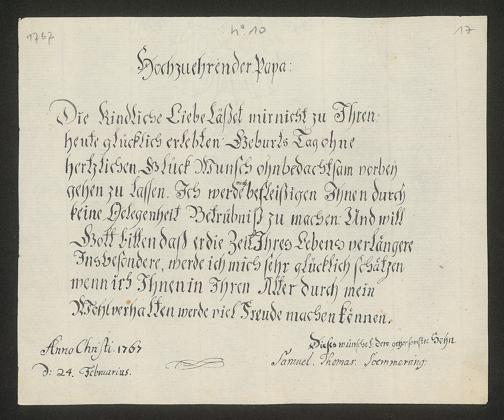 1767
No. 10
17
Hochzuehrender Papa:
Die Kindliche Liebe Läßet mir nicht zu Ihren
heute glücklich erlebten Geburts Tag ohne
hertzlichen Glück Wunsch ohnbedachtsam vorbey
gehen zu lassen. Ich werde mich befleißigen Ihnen durch
keine Gelegenheit Betrübniß zu machen. Und will
Gott bitten daß er die Zeit Ihres Lebens verlängere
Insbesondere, werde ich mich sehr glücklich schätzen
wenn ich Ihnen in Ihren Alter durch mein
Wohlverhalten werde viel Freude machen können.
Anno Christi. 1767
d: 24. Februarius.
Dieses wünschet dero gehorsamster Sohn
Samuel Thomas Soemmering